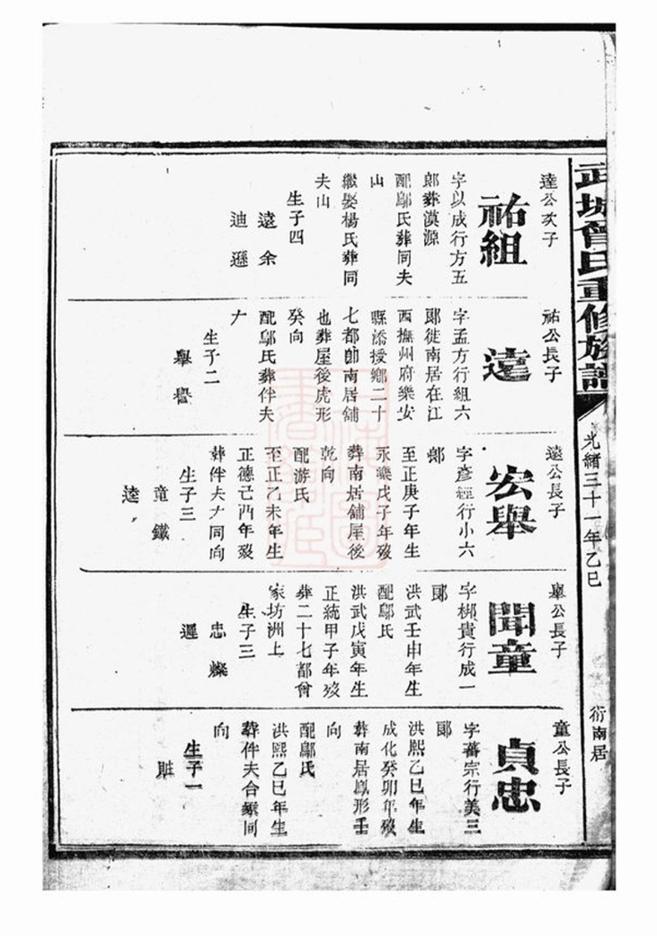 武城曾氏重修族譜
光緒三十一年乙巳
衍南居
達公次子
祐組
字以成行方五
郎葬漠源
配鄔氏葬同夫
山
繼娶楊氏葬同
夫山
生子四
遠 余
迪 遜
祐公長子
遠
字孟方行組六
郎徙南居在江
西撫州府樂安
縣添授鄉二十
七都帥南居舖
也葬屋後虎形
癸向
配鄔氏葬伴夫
生子二
舉 譽
遠公長子
宏舉
字彥經行小六
郎
至正庚子年生
永樂戊子年歿
葬南居舖屋後
乾向
配游氏
至正乙未年生
正德己酉年歿
葬伴夫大同向
生子三
童 鐵
逵
舉公長子
聞童
字梆貴行成一
郎
洪武壬申年生
配鄔氏
洪武戊寅年生
正統甲子年歿
葬二十七都曾
家坊洲上
生子三
忠 燦
遲
童公長子
貞忠
字蕃宗行美三
郎
洪熙乙巳年生
成化癸卯年歿
葬南居鳳形壬
向
配鄔氏
洪熙乙巳年生
葬伴夫合塚同
向
生子一